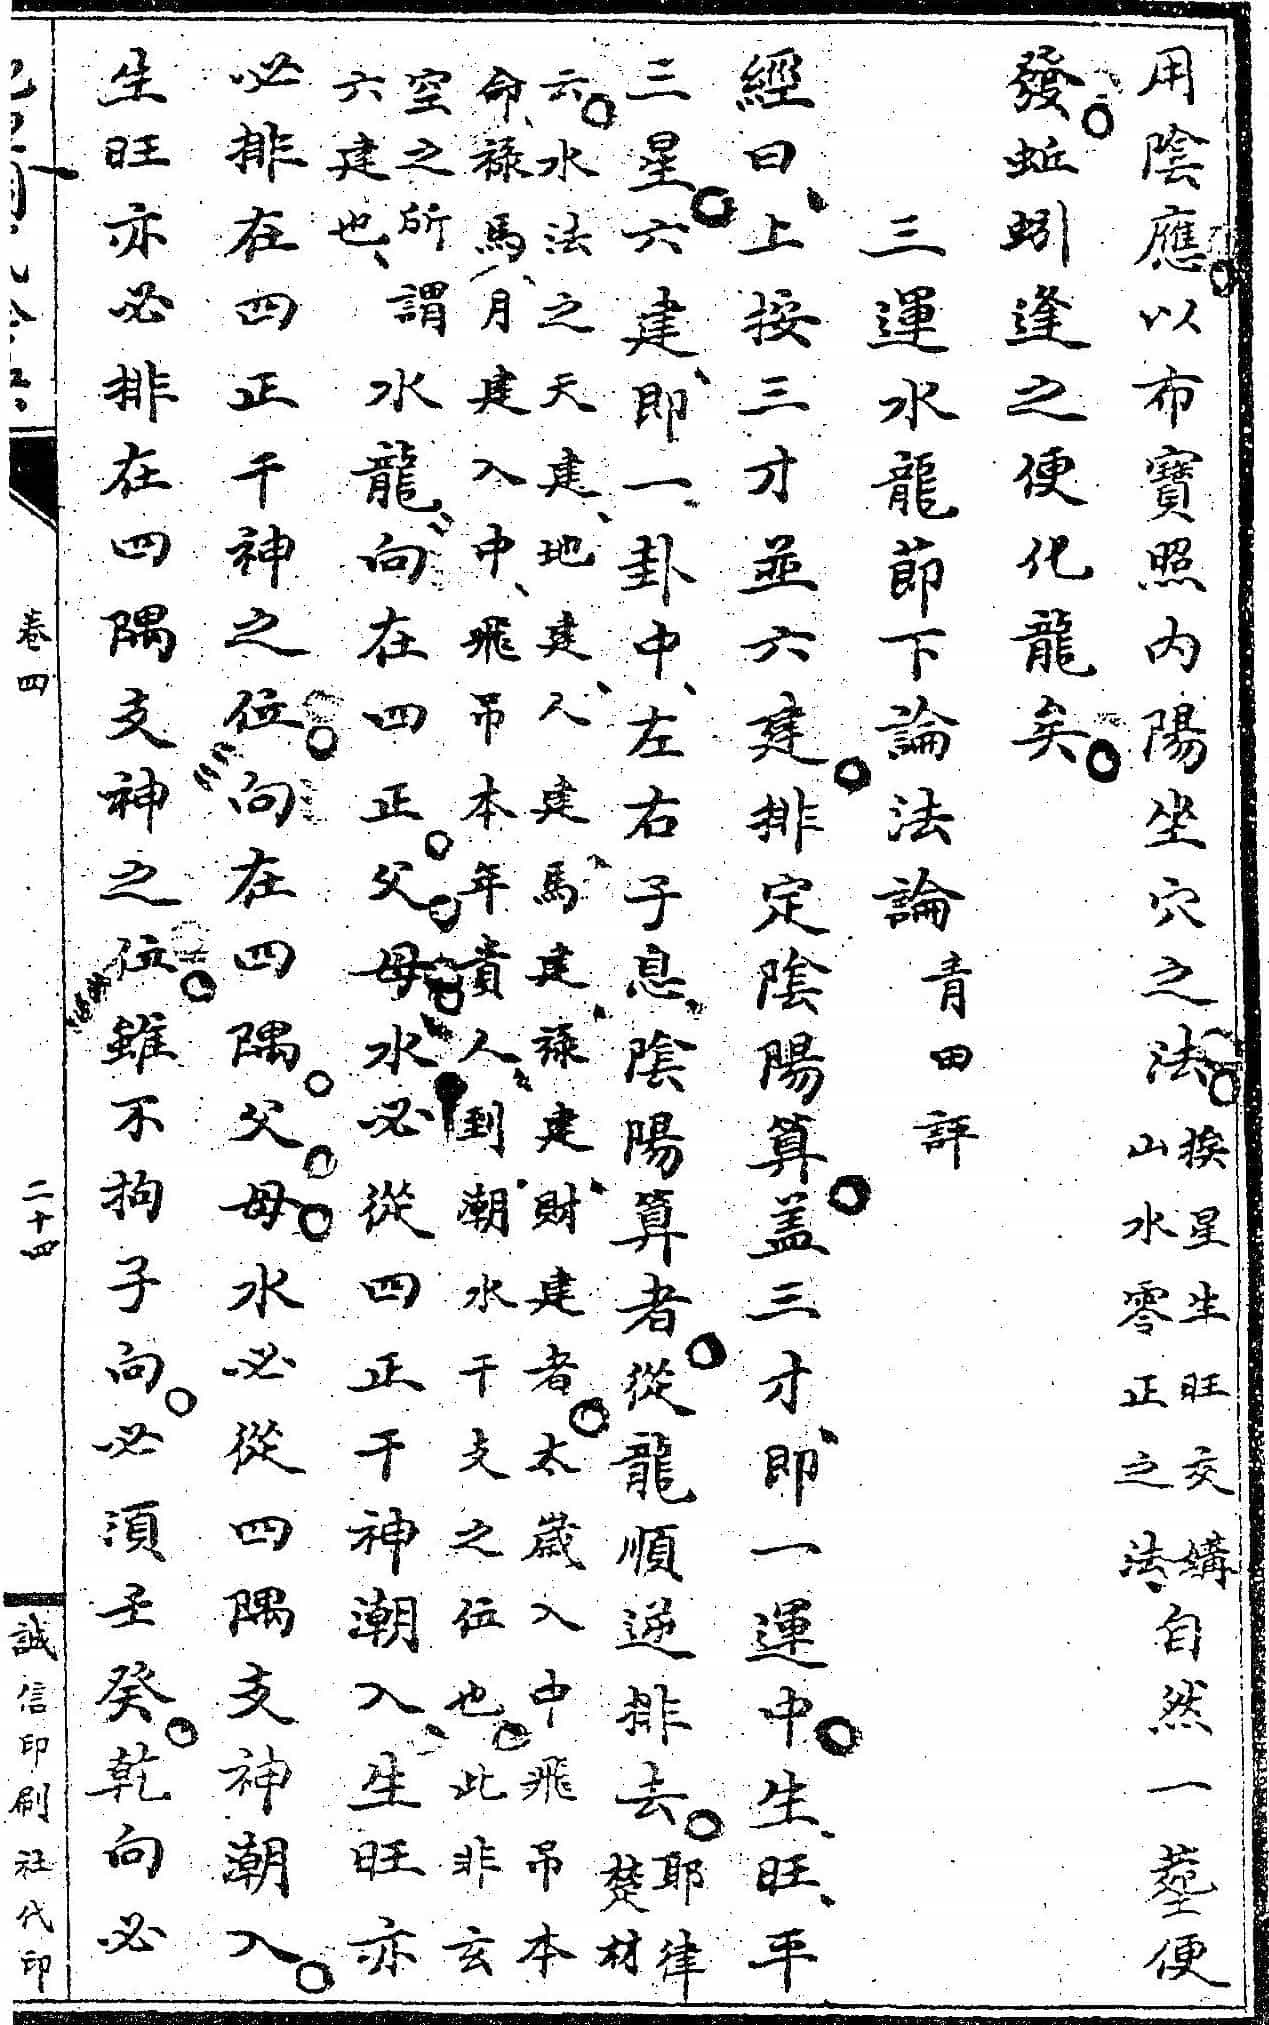 用陰應以布寶照內陽坐穴之法
挨星生旺交媾
山水零正之法
自然一塟便
發蚯蚓逢之便化龍矣
三運水龍節下論法論
青田評
經曰上按三才並六建排定陰陽算盖三才即一運中生旺平
三星六建即一卦中左右子息陰陽算者從龍順逆排去
耶律
楚材
云水法之天建地建人建馬建祿建財建者太歲入中飛吊本
命祿馬月建入中飛吊本年貴人到潮水干支之位也此非玄
空之所謂
六建也
水龍向在四正父母水必從四正干神潮入生旺亦
必排在四正干神之位向在四隅父母水必從四隅支神潮入
生旺亦必排在四隅支神之位雖不拘子向必須壬癸乾向必
卷四
二十四
誠信印刷社代印